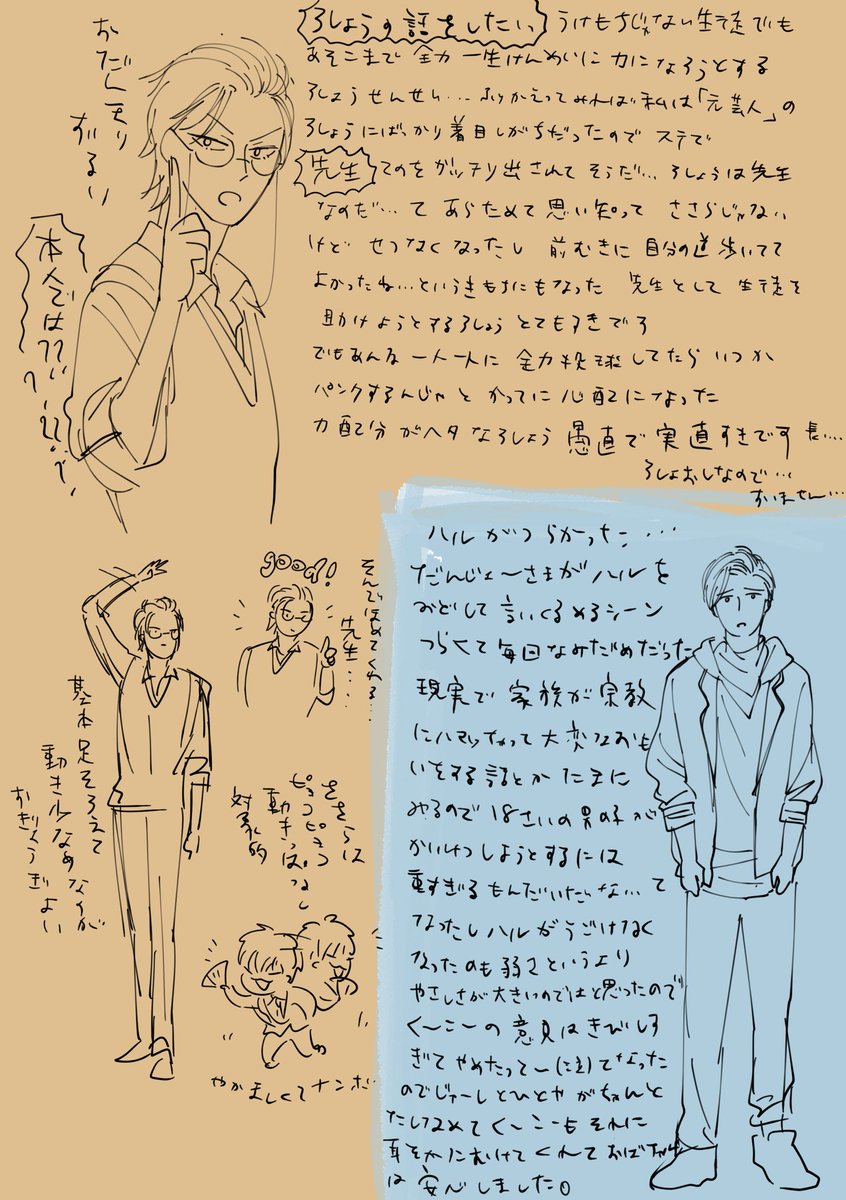 ろしょうの話をしたいっ うけもちじゃない生徒でも
あそこまで全力一生けんめいに力になろうとする
ろしょうせんせい… ふりかえってみれば私は「元芸人」の
ろしょうにばっかり着目しがちだったのでステで
先生 てのをガッチリ出されてそうだ… ろしょうは先生
なのだ…てあらためて思い知って ささらじゃない
けど せつなくなったし 前むきに自分の道歩いてて
よかったね…というきもちにもなった 先生として生徒を
助けようとするろしょう とてもすきです
でもあんな一人一人に全力投球してたらいつか
パンクするんじゃとかってに心配になった
力配分がヘタなろしょう 愚直で実直すきです 長い…
ろしょおしなので…
すいません…
おだんまり
ずるい
本人では??
good!
そんでほめてくれる…
先生…
基本足そろえて
動き少なめなのが
おぎょうぎよい
ささらは
ピョコピョコ
動きっぱなし
対象的
やかましくてナンボ
ハルがつらかった…
だんじょーさまがハルを
おどして言いくるめるシーン
つらくて毎回なみだめだった
現実で家族が宗教
にハマっちゃって大変なおも
いをする話とかたまに
みるので18さいの男の子が
かいけつしようとするには
重すぎるもんだいだな…て
なったしハルがうごけなく
なったのも弱さというより
やさしさが大きいのではと思ったので
く〜こ〜の意見はきびしす
ぎてやめたって〜(泣)てなった
のでじゅーしとひとやがちゃんと
たしなめてく〜こ〜もそれに
耳をかたむけてくれておばちゃん
は安心しました。